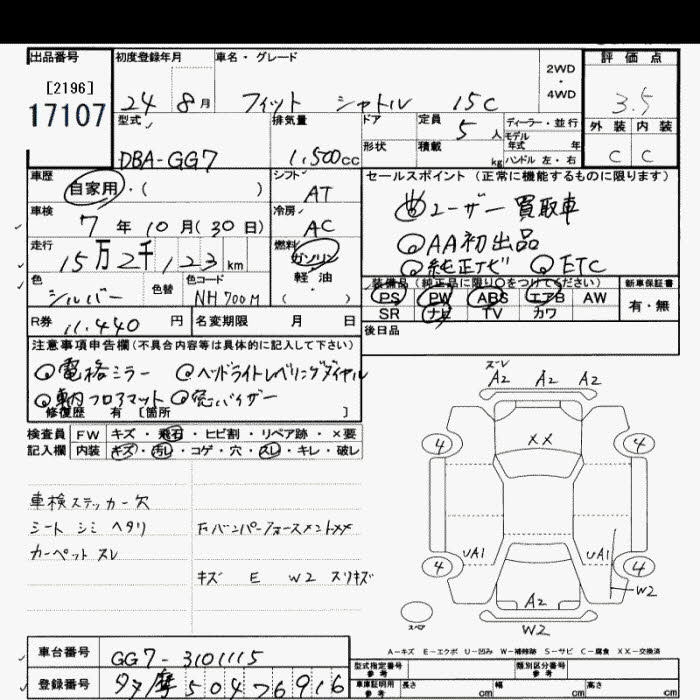 出品番号 初度登録年月 車名・グレード 2WD・4WD 評価点
[2196]
17107
24 8月 フィット シャトル 15C 3.5
型式 排気量 ドア 定員 5人 ディーラー・並行 外装 内装
モデル年式 年
形状 積載 kg ハンドル 左・右 C C
DBA-GG7 1,500cc
車歴 自家用・( ) シフト AT セールスポイント (正常に機能するものに限ります)
車検 7年10月(30日) 冷房 AC ユーザー買取車
走行 15万2千123km 燃料 ガソリン 軽油 ( ) AA初出品
純正ナビ ETC
色 シルバー 色替 色コード NH700M
装備品 (純正品に限り○をつけてください) 新車保証書
PS PW ABS エアB AW 有・無
SR ナビ TV カワ
R券 11,440円 名変期限 月 日 後日品
注意事項申告欄(不具合内容等は具体的に記入して下さい)
電格ミラー ヘッドライトレベリングダイヤル
車内フロアマット 窓バイザー
修復歴 有 [箇所 ]
検査員 FW キズ・飛石・ヒビ割・リペア跡・×要
記入欄 内装 キズ・汚レ・コゲ・穴・スレ・キレ・破レ
車検ステッカー欠
シート シミ ヘタリ
カーペット スレ
キズ E W2 スリキズ
ズレ
A2 A2 A2
XX
4 4
UA1 UA1
4 4
W2
A2
スペア
W2
A-キズ E-エクボ U-凹み W-補修跡 S-サビ C-腐食 XX-交換済
車台番号 GG7-3101115
登録番号 504 6916
型式指定番号 参考 類別区分番号 参考
車庫証明用 参考 長さ cm 幅 cm 高さ cm